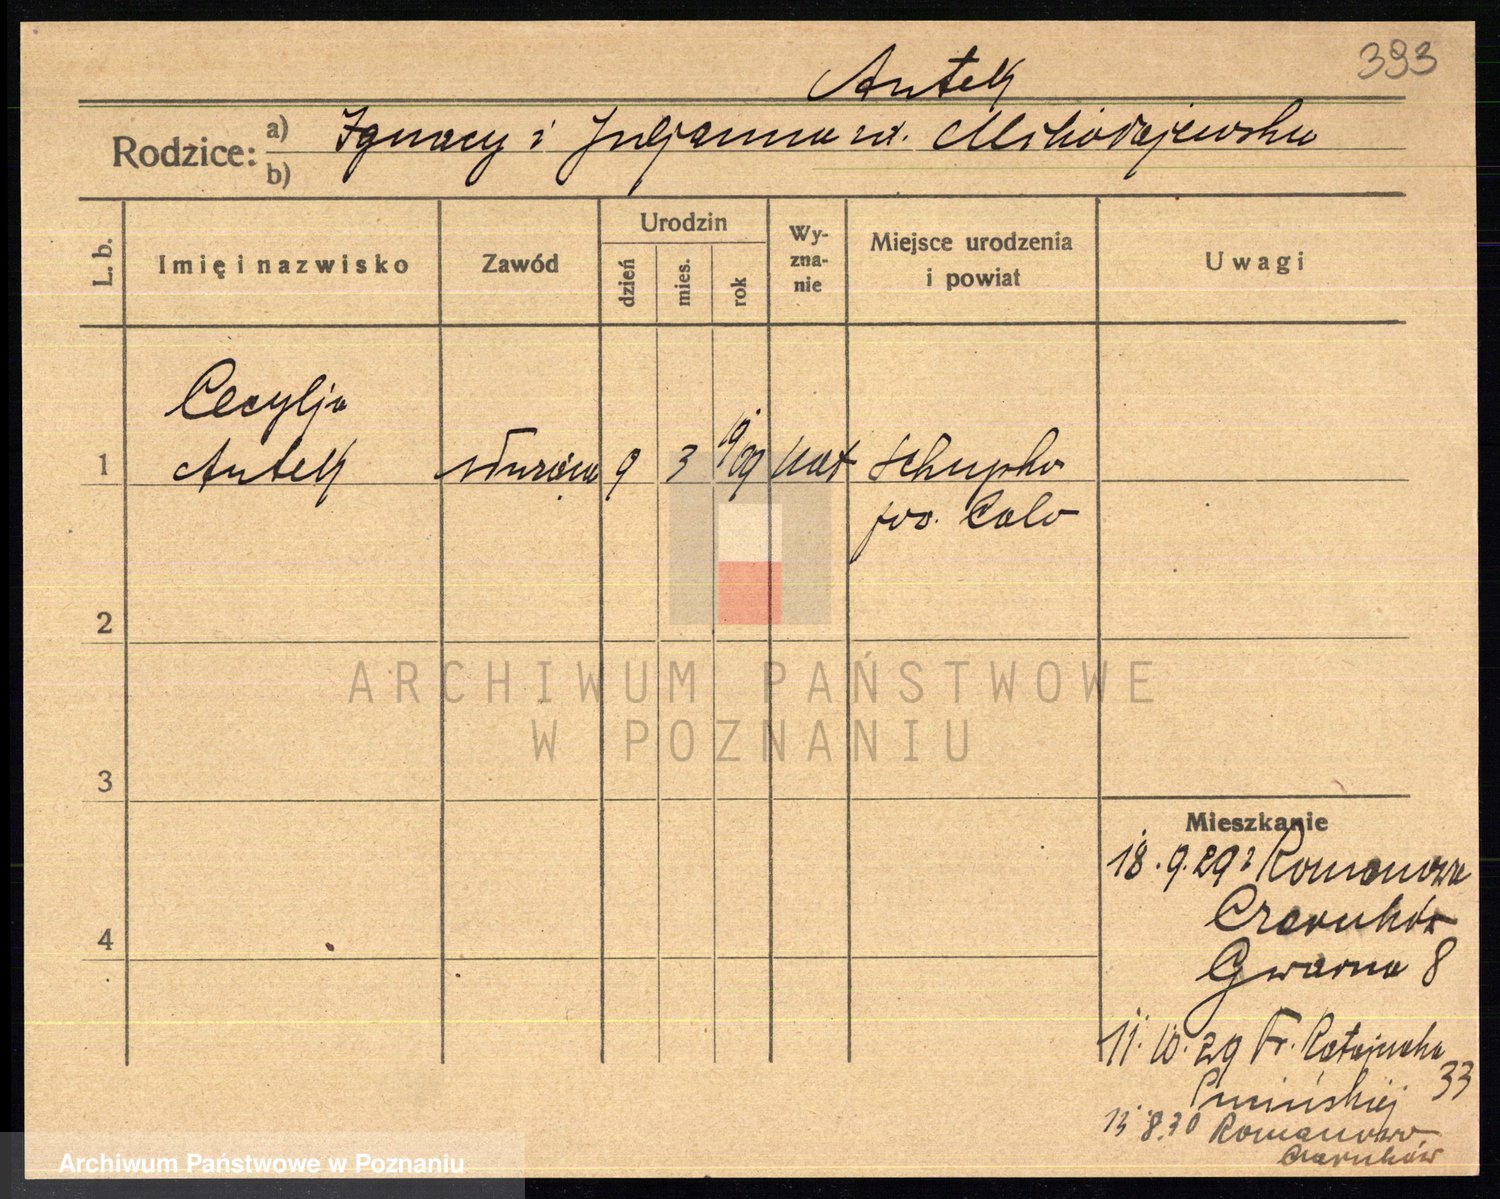 393
Antek
Rodzice: a) Ignacy i Juljanna zd. Mikołajewska
b)
L. b. Imię i nazwisko Zawód Urodzin dzień mies. rok Wy-zna-nie Miejsce urodzenia i powiat Uwagi
Cecylja
1 Antek służąca 9 3 19/09 kat
pow.
2
ARCHIWUM PAŃSTWOWE
W POZNANIU
3
Mieszkanie
18.9.29 z Romanowa
Czarnków
4
Gwarna 8
11.10.29 Fr. Ratajczaka
33
13.8.30 Romanowo
Czarnków
Archiwum Państwowe w Poznaniu